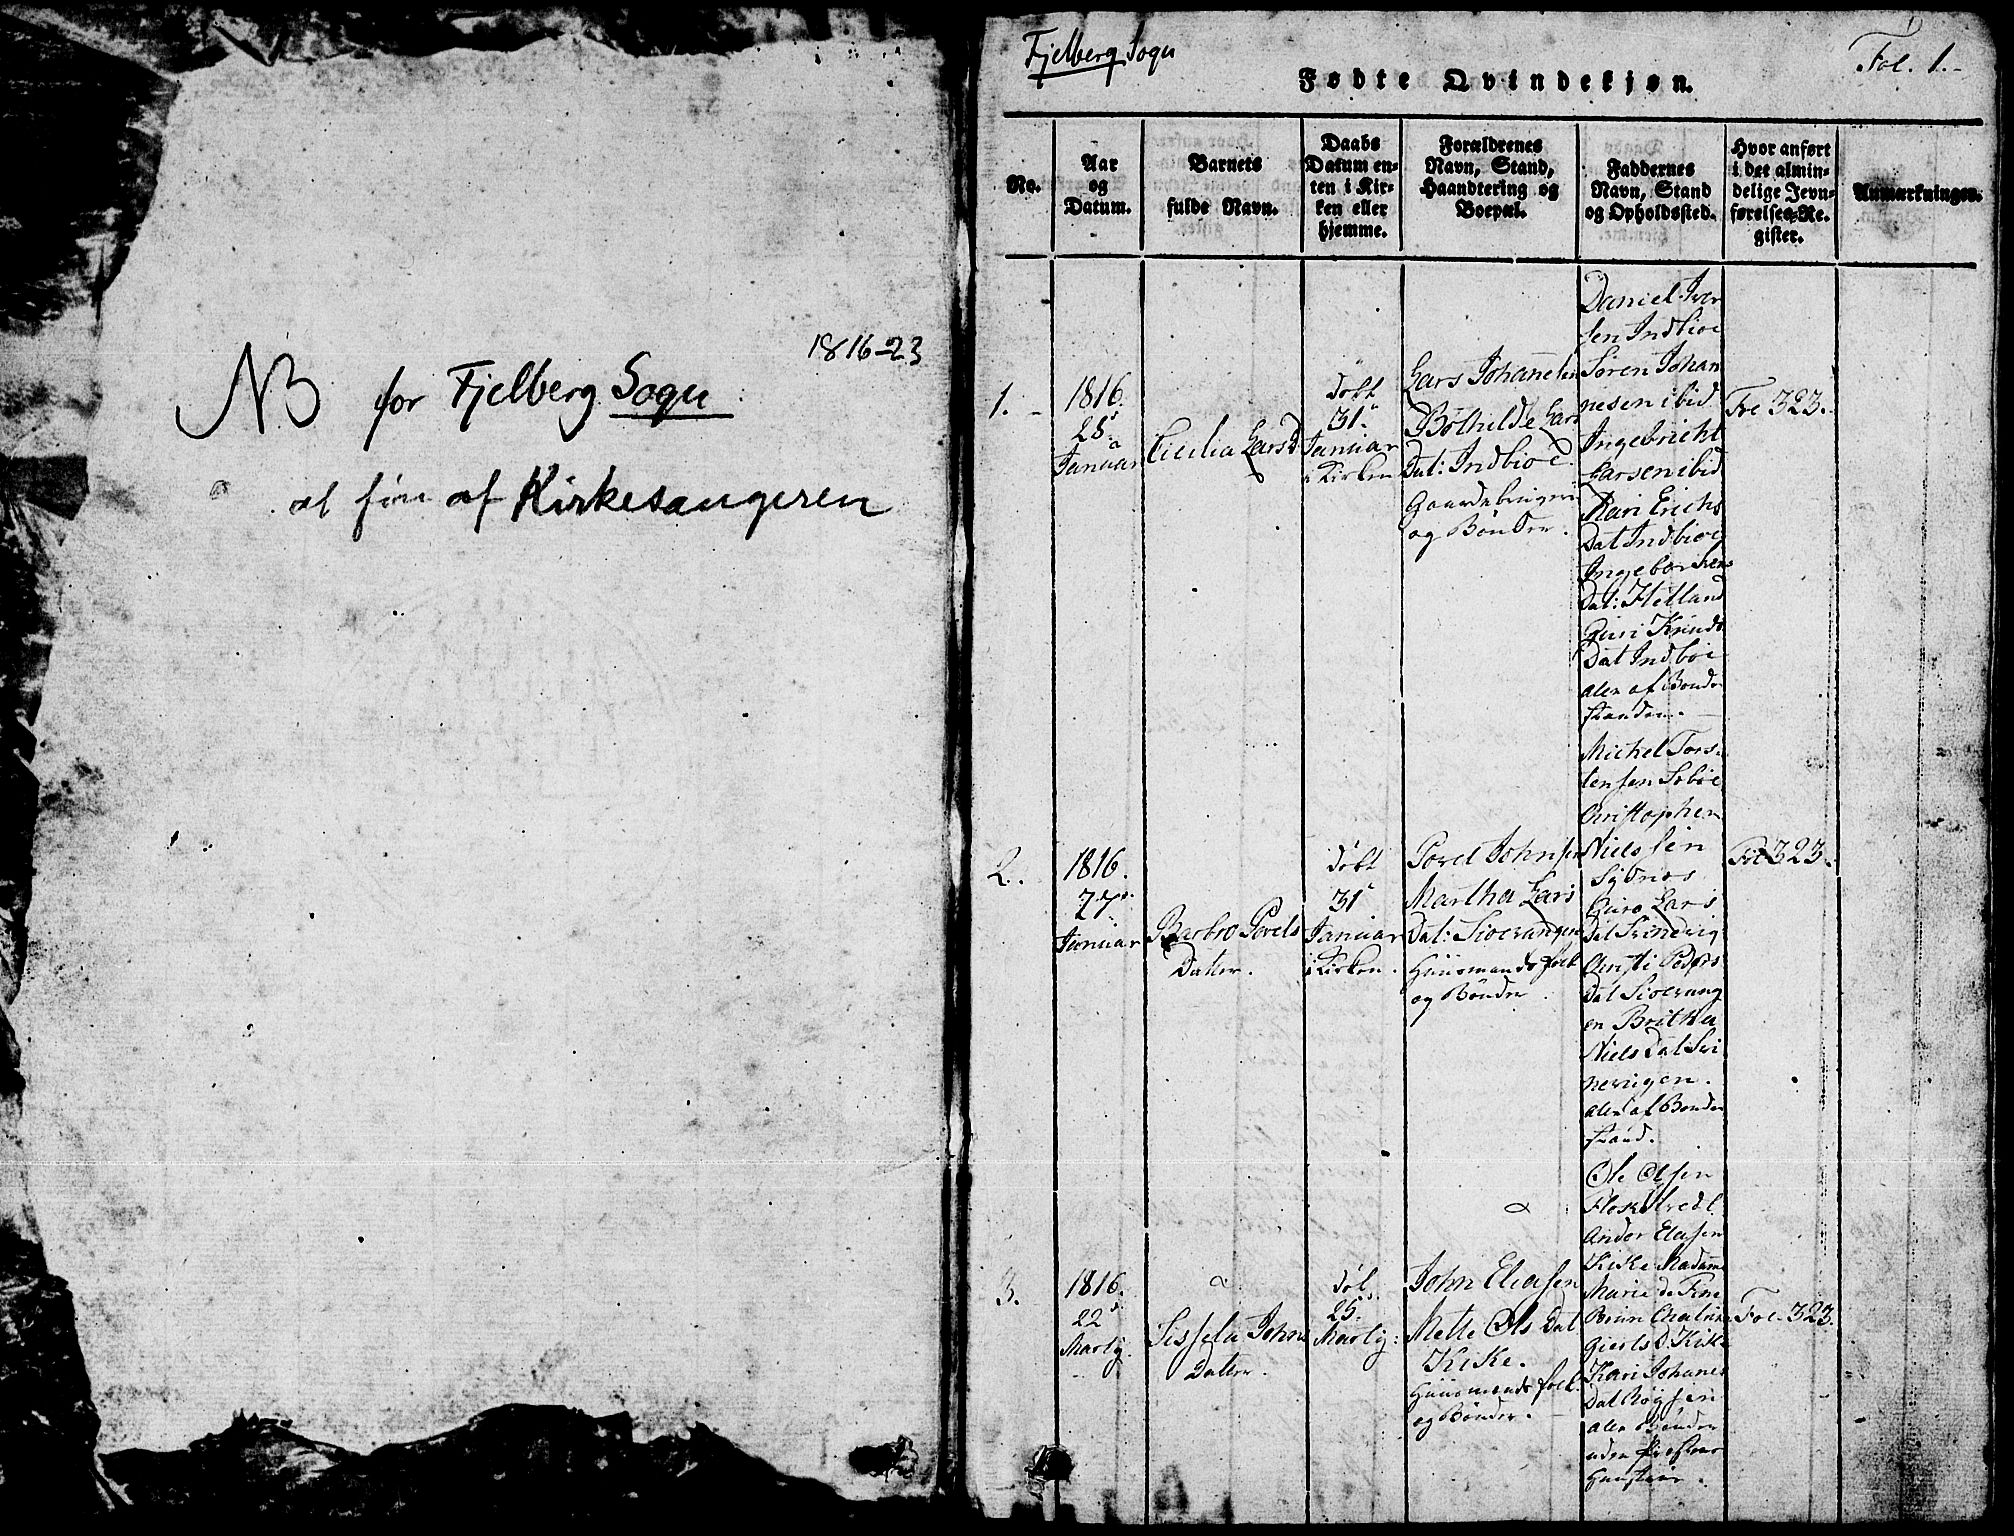 1816-23
NB for Fjelberg Sogn
at føre af Kirkesangeren
Fjelberg Sogn
Fol. 1.-
Fødte Qvindekjøn.
No.
Aar
og
Datum.
Barnets
fulde Navn.
Daabs
Datum en-
ten i Kir-
ken eller
hjemme.
Forældrenes
Navn, Stand,
Haandtering og
Boepæl.
Faddernes
Navn, Stand
og Opholdssted.
Hvor anført
i det almin-
delige Jevn-
førelses-Re-
gister.
Anmærkninger.
1.
1816.
25
Januar
Cicilia Larsd.
døbt
31
Januar
i Kirken
Lars Johannesen
Bothilde Lars
Dat: Indbioe
Gaardebrugere
og Bønder.
Daniel Iver
sen Indbioe
Søren Johan
nesen ibid
Ingebricht
Larsen ibid
Kari Erichs
Dat Indbioe
Ingebor Svens
Dat: Hetland
Guri Knuds
Dat Indbioe
alle af Bonde
standen.
Fol 323.
2.
1816.
27
Januar
Barbro Povels
Datter.
døbt
31
Januar
i Kirken.
Povel Johnsen
Martha Lars
Dat: Sioevangen
Huusmands folk
og Bønder
Michel Tors
tensen Søbøe
Christopher
Nielssen
Sydnes
Guro Lars
Dat
Christi Peders
Dat Sioevang
en Britha
Niels Dat
alle af Bonde
stand.
Fol 323.
3.
1816.
22
Martij.
Sissela Johns
Datter.
døbt
25
Martij:
John Eliasen
Mette Ols Dat
Kike.
Huusmands folk
og Bønder.
Ole Olsen
Ander Elasen
Kike Madame
Marie de Fine
Giertsd. Kike
Kari Johanes
Dat
alle Bønder
uden
Fol. 323.